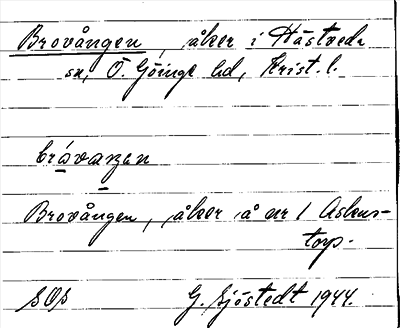 Brovången, åker i Hästveda
sn, Ö. Göinge hd, Krist. l.
bròvaŋen
Brovången, åker å nr 1 Askus-
torp.
SOS G. Sjöstedt 1944.